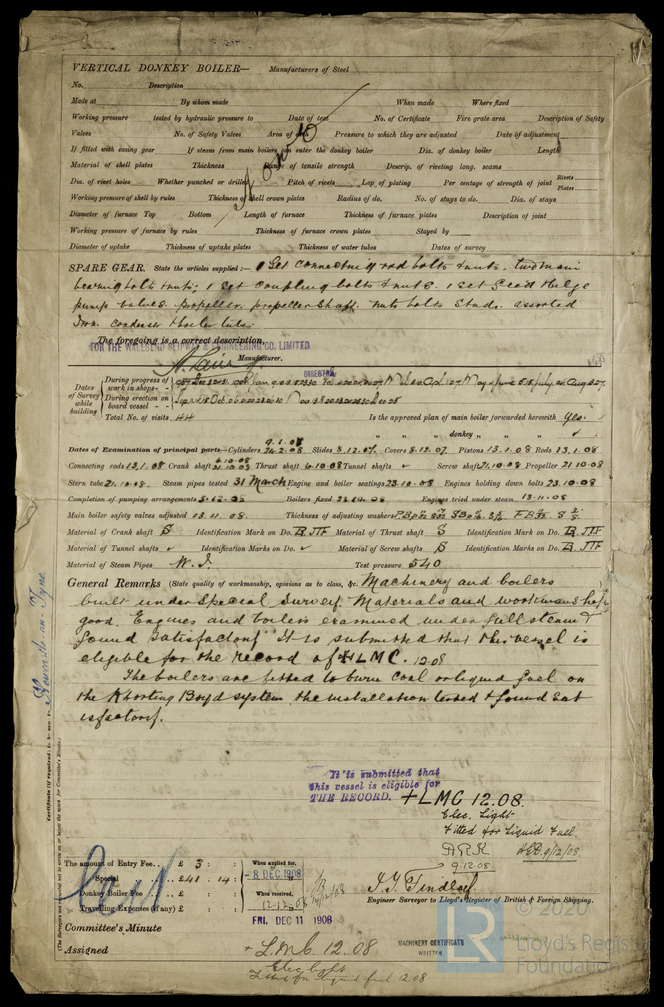 VERTICAL DONKEY BOILER— Manufacturers of Steel
No. Description
Made at By whom made When made Where fixed
Working pressure tested by hydraulic pressure to Date of test No. of Certificate Fire grate area Description of Safety
Valves No. of Safety Valves Area of each Pressure to which they are adjusted Date of adjustment
If fitted with easing gear If steam from main boilers can enter the donkey boiler Dia. of donkey boiler Length
Material of shell plates Thickness Range of tensile strength Descrip. of riveting long. seams
Dia. of rivet holes Whether punched or drilled Pitch of rivets Lap of plating Per centage of strength of joint Rivets Plates
Working pressure of shell by rules Thickness of shell crown plates Radius of do. No. of stays to do. Dia. of stays
Diameter of furnace Top Bottom Length of furnace Thickness of furnace plates Description of joint
Working pressure of furnace by rules Thickness of furnace crown plates Stayed by
Diameter of uptake Thickness of uptake plates Thickness of water tubes Dates of survey
SPARE GEAR. State the articles supplied:— 1 Set connecting rod bolts & nuts. two main
bearing bolts & nuts; 1 set coupling bolts & nuts. 1 set Feed & Bilge
pump valves. propeller. propeller shaft. nuts bolts studs. assorted
Iron. condenser & boiler tubes.
The foregoing is a correct description,
FOR THE WALLSEND SLIPWAY & ENGINEERING CO. LIMITED.
Manufacturer.
DIRECTOR
Dates of Survey while building
During progress of work in shops - -
During erection on board vessel - - -
Total No. of visits 44 Is the approved plan of main boiler forwarded herewith Yes.
" " " donkey " " "
Dates of Examination of principal parts—Cylinders 9.1.08 24.2.08 Slides 3.12.07. Covers 3.12.07. Pistons 13.1.08 Rods 13.1.08
Connecting rods 13.1.08 Crank shaft 6.10.08 21.10.08 Thrust shaft 6.10.08 Tunnel shafts ✓ Screw shaft 21.10.08 Propeller 21.10.08
Stern tube 21.10.08. Steam pipes tested 31 March Engine and boiler seatings 23.10.08 Engines holding down bolts 23.10.08
Completion of pumping arrangements Boilers fixed Engines tried under steam 13.11.08
Main boiler safety valves adjusted 13.11.08. Thickness of adjusting washers
Material of Crank shaft S Identification Mark on Do. Material of Thrust shaft S Identification Mark on Do.
Material of Tunnel shafts ✓ Identification Marks on Do. ✓ Material of Screw shafts S Identification Marks on Do.
Material of Steam Pipes W. I. Test pressure 540
General Remarks (State quality of workmanship, opinions as to class, &c. Machinery and boilers
built under Special Survey. Materials and workmanship
good. Engines and boilers examined under full steam &
found satisfactory. It is submitted that this vessel is
eligible for the record of + LMC. 12.08
The boilers are fitted to burn coal or liquid fuel on
the Korting Boyd system. the installation tested & found sat
isfactory.
Newcastle-on-Tyne
It is submitted that
this vessel is eligible for
THE RECORD. + LMC 12.08.
Elec. Light
Fitted for Liquid Fuel.
9.12.08
The amount of Entry Fee . . £ 3 : :
Special . . . . £ 41 : 14 :
Donkey Boiler Fee . . . £ : :
Travelling Expenses (if any) £ : :
When applied for,
- 8 DEC 1908
When received,
12.12.08
FRI. DEC 11 1908
J. T. Findlay
Engineer Surveyor to Lloyd's Register of British & Foreign Shipping.
Committee's Minute
Assigned + L.M.C. 12.08
Elec Light
Fitted for liquid fuel 12.08
MACHINERY CERTIFICATE
WRITTEN
© 2020
LR
Lloyd's Register
Foundation